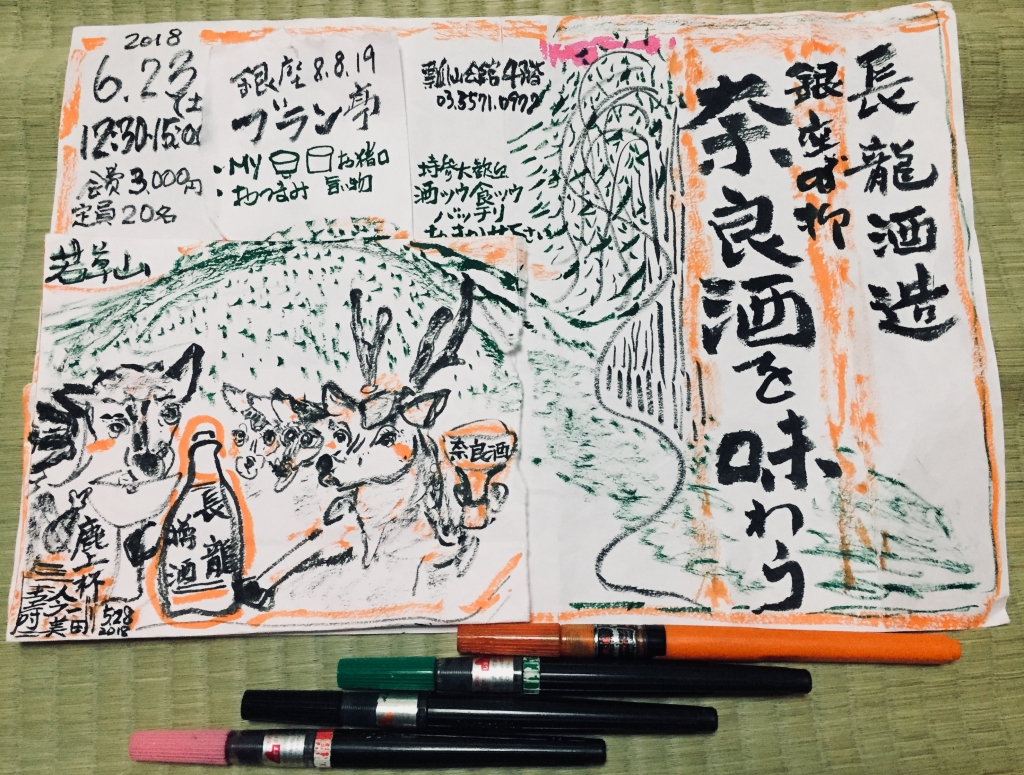 長龍酒造
銀座の柳
奈良酒を味わう
2018
6.23土
12:30-15:00
会費3,000円
定員20名
銀座8.8.19
ブラン亭
・MY お猪口
・おつまみ 買い物
瓢山会館4階
03.3571.0972
持参大歓迎
酒ッウ食ッウ
バッチリ
若草山
奈良酒
長龍
酒
鹿二杯
528
2018